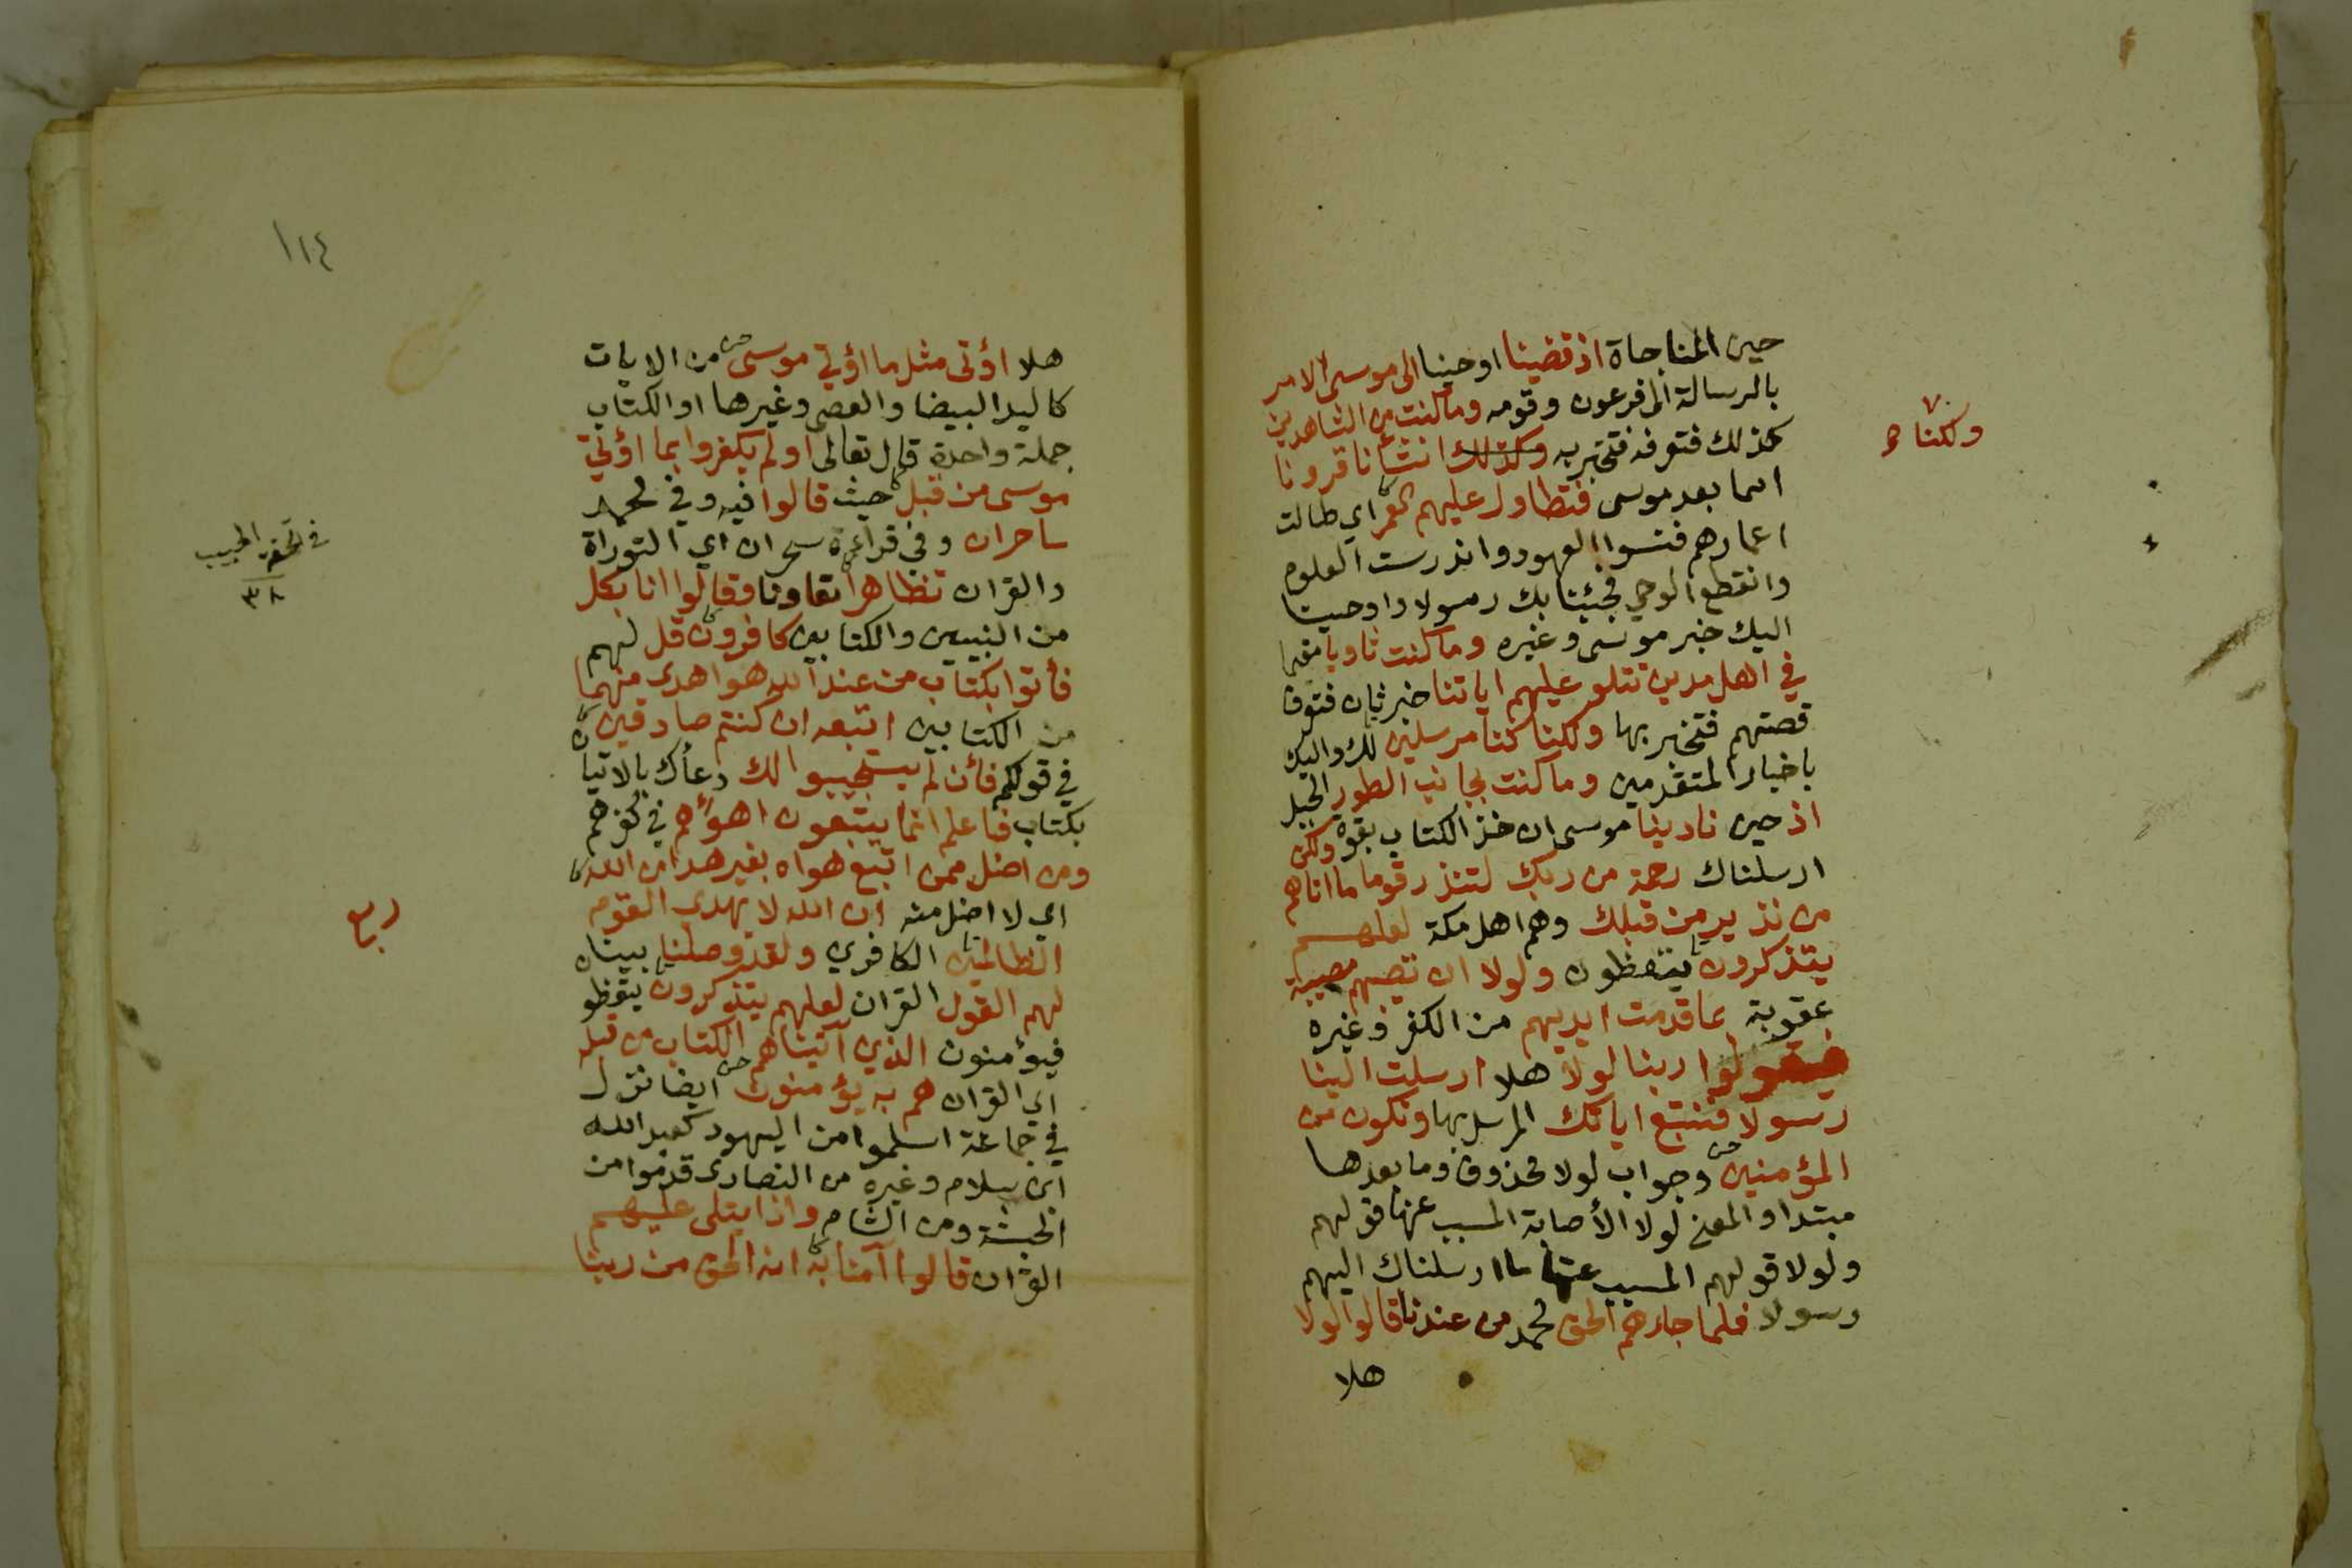 حين المناجاة اذ قضينا اوحينا الى موسى الامر
بالرسالة الى فرعون وقومه وما كنت من الشاهدين
كذلك فتعرفه فتخبر به وكذلك انشأنا قرونا
ولكنا
امما بعد موسى فتطاول عليهم العمر اي طالت
اعمارهم فنسوا العهود واندرست العلوم
وانقطع الوحي فجئنا بك رسولا واوحينا
اليك خبر موسى وغيره وما كنت ثاويا مقيما
في اهل مدين تتلو عليهم اياتنا خبر ثان فتعرف
قصتهم فتخبر بها ولكنا كنا مرسلين لك واليك
باخبار المتقدمين وما كنت بجانب الطور الجبل
اذ حين نادينا موسى ان خذ الكتاب بقوة ولكن
ارسلناك رحمة من ربك لتنذر قوما ما اتاهم
من نذير من قبلك وهم اهل مكة لعلهم
يتذكرون يتعظون ولولا ان تصيبهم مصيبة
عقوبة بما قدمت ايديهم من الكفر وغيره
فيقولوا ربنا لولا هلا ارسلت الينا
رسولا فنتبع اياتك المرسل بها ونكون من
المؤمنين وجواب لولا محذوف وما بعدها
مبتدا والمعنى لولا الأصابة المسبب عنها قولهم
ولولا قولهم المسبب عنها ما ارسلناك اليهم
رسولا فلما جاءهم الحق محمد من عندنا قالوا لولا
هلا
١١٤
هلا اؤتى مثل ما اؤتي موسى من الايات
كاليد البيضا والعصى وغيرها او الكتاب
جملة واحدة قال تعالى اولم يكفروا بما اؤتي
موسى من قبل حيث قالوا فيه وفي محمد
ساحران وفي قراءة سحران اي التوراة
والقران تظاهرا تعاونا وقالوا انا بكل
من النبيين والكتابين كافرون قل لهم
فأتوا بكتاب من عند الله هو اهدى منهما
من الكتابين اتبعه ان كنتم صادقين
في قولكم فأن لم يستجيبوا لك دعأك بالاتيا
بكتاب فاعلم انما يتبعون اهوأهم في كفرهم
ومن اضل ممن اتبع هواه بغير هدا من الله
اي لا اضل منه ان الله لا يهدى القوم
ربع
الظالمين الكافري ولقد وصلنا بيناه
لهم القول القران لعلهم يتذكرون يتعظو
فيؤمنون الذي آتيناهم الكتاب من قبله
اي القران هم به يؤمنون ايضا نزل
في جماعة اسلموا من اليهود كعبد الله
ابن سلام وغيره من النصارى قدموا من
الحبشة ومن الشام واذا يتلى عليهم
القرأن قالوا آمنا به انه الحق من ربنا